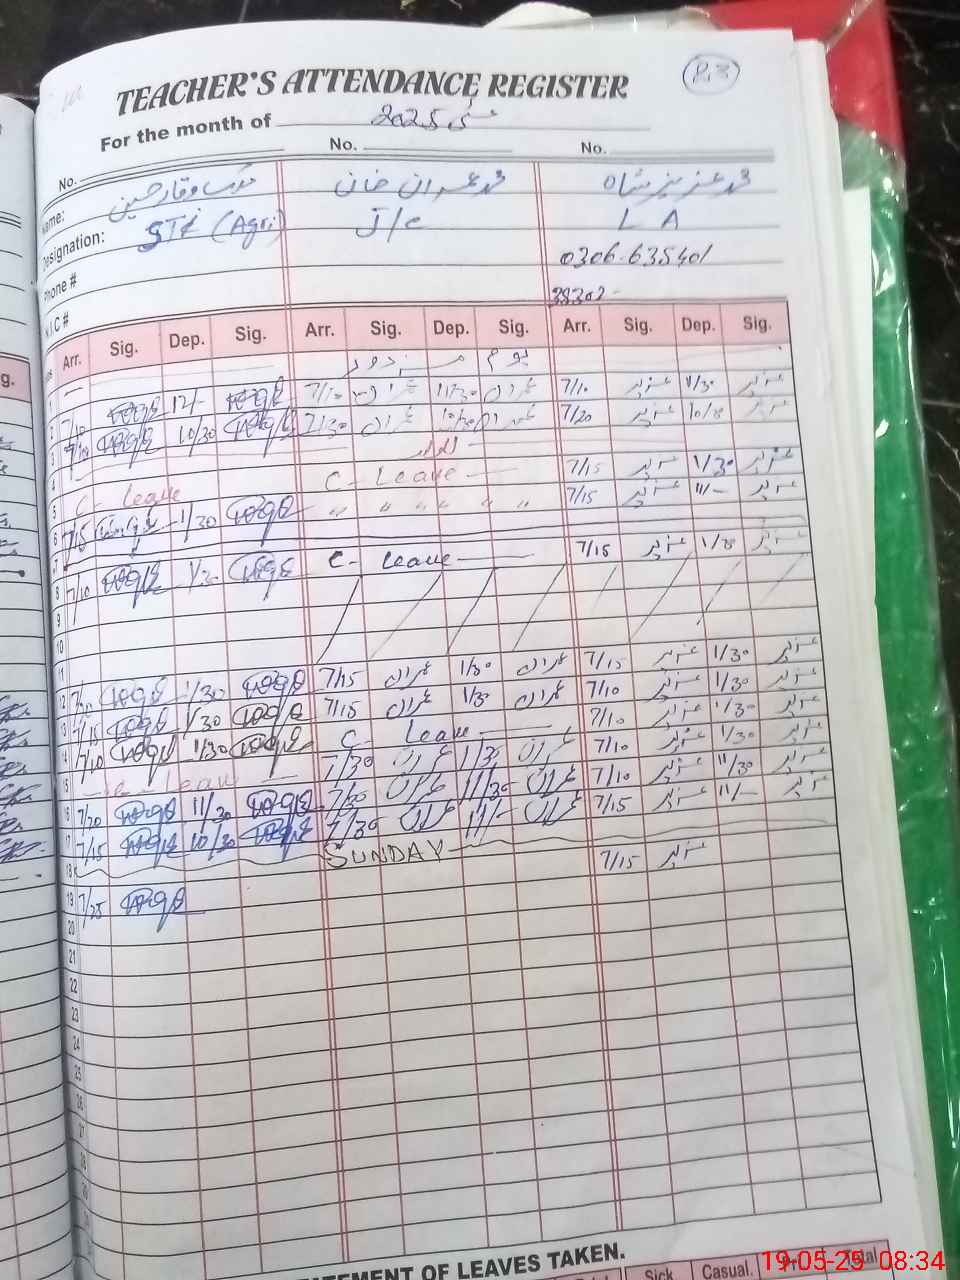 P.3
TEACHER'S ATTENDANCE REGISTER
For the month of مئی 2025
No. No. No.
Name: ملک وقار حسین محمد عمران خان محمد عزیز شاہ
Designation: (Agri) J/C L A
Phone # 0306-635401
N.I.C # 38302-
Arr. Sig. Dep. Sig. Arr. Sig. Dep. Sig. Arr. Sig. Dep. Sig.
1 یوم مزدور
2 7/10 12/- 7/10 عمران 11/30 عمران 7/10 عزیز 1/30 عزیز
3 7/10 10/30 7/30 عمران 10/30 عمران 7/20 عزیز عزیز
4 اتوار
5 C- Leave C- Leave 7/15 عزیز 1/30 عزیز
6 7/15 1/30 〃 〃 〃 〃 〃 7/15 عزیز 11/- عزیز
7
8 7/10 1/30 C- Leave 7/15 عزیز عزیز
9
10
11
12 7/10 1/30 7/15 عمران 1/30 عمران 7/15 عزیز 1/30 عزیز
13 7/15 1/30 7/15 عمران 1/30 عمران 7/10 عزیز 1/30 عزیز
14 7/10 1/30 C- Leave 7/10 عزیز 1/30 عزیز
15 C- Leave 7/30 عمران 1/30 عمران 7/10 عزیز 1/30 عزیز
16 7/20 11/30 7/30 عمران 11/30 عمران 7/10 عزیز 11/30 عزیز
17 7/15 10/30 7/30 عمران 11/- عمران 7/15 عزیز 11/- عزیز
18 SUNDAY
19 7/25 7/15 عزیز
20
21
22
23
24
25
26
27
STATEMENT OF LEAVES TAKEN.
Sick Casual. Total
19-05-25 08:34